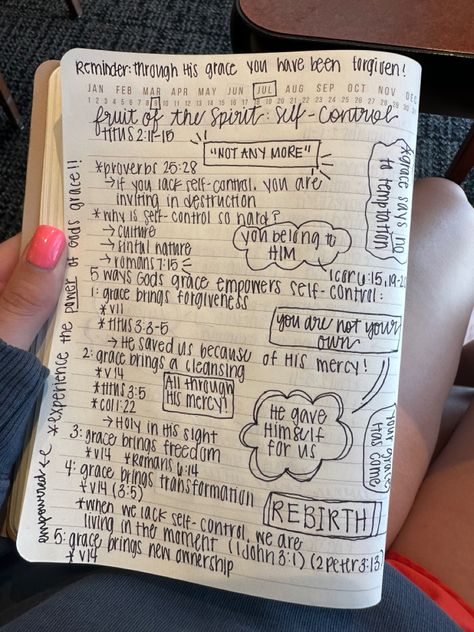 Reminder: through His grace you have been forgiven!
JAN FEB MAR APR MAY JUN JUL AUG SEP OCT NOV DEC
1 2 3 4 5 6 7 8 9 10 11 12 13 14 15 16 17 18 19 20 21 22 23 24 25 26 27 28 29 30 31
fruit of the Spirit: Self-Control
titus 2:11-15
"NOT ANY MORE"
*proverbs 25:28
→ if you lack self-control, you are
inviting in destruction
*why is self-control so hard?
→ culture
→ sinful nature
→ romans 7:15
you belong to
HIM
*grace says no
to temptation
1 cor 6:15, 19-2
5 ways Gods grace empowers self-control:
1: grace brings forgiveness
*v11
*titus 3:3-5
→ He saved us because of His mercy!
you are not your
own
2: grace brings a cleansing
*v14
*titus 3:5
*col 1:22
→ Holy in His sight
All through
His mercy!
He gave
Himself
for us
your grace
Has come
3: grace brings freedom
*v14 *Romans 6:14
4: grace brings transformation
*v14 (3:5)
*when we lack self-control, we are
living in the moment (1 John 3:1) (2 peter 3:13)
REBIRTH
5: grace brings new ownership
*v14
*experience the power of Gods grace!!!
empowered